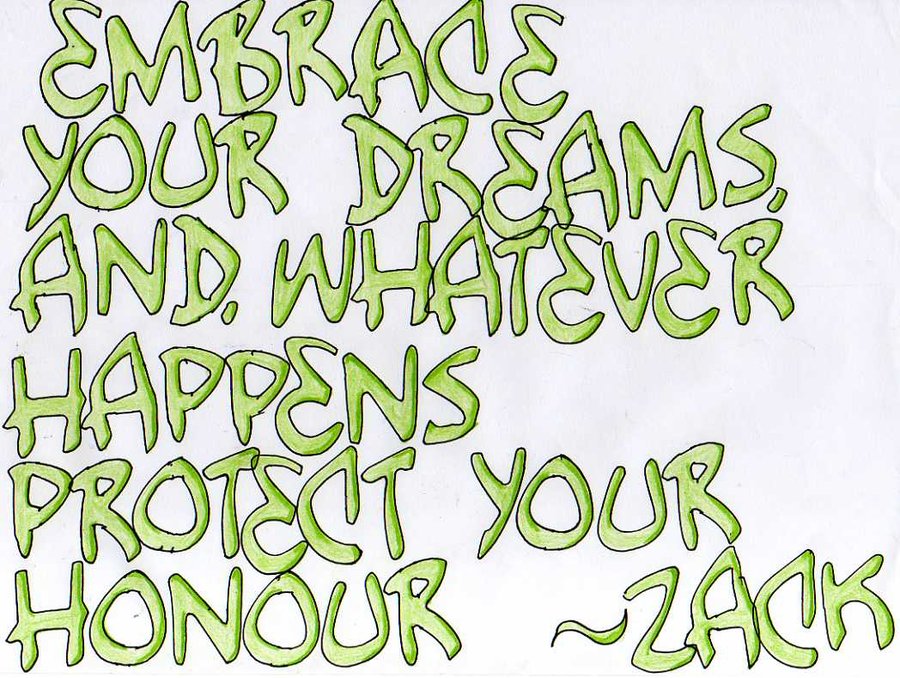 EMBRACE
YOUR DREAMS,
AND, WHATEVER
HAPPENS
PROTECT YOUR
HONOUR ~ZACK